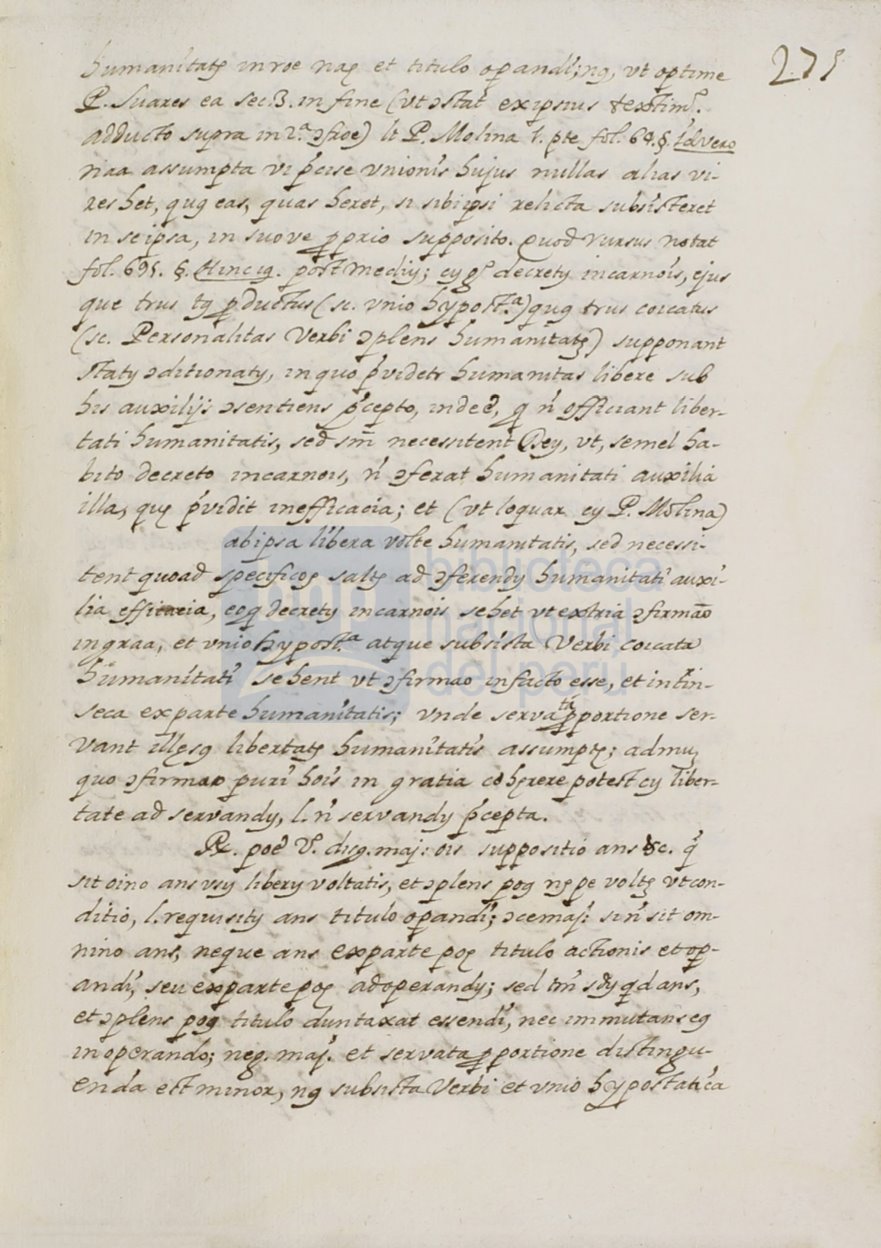 275
humanitatȩ in roe naȩ et titulo oꝑandi; nȩ, vt optime
P. Suares ea sec. 3. in fine (vt ɔstat ex ipsius
adducto supra in 2.ª ɔfroe) P. Molina 1. pte fol. 64. §.
naa assumpta vi p̃cise vnionis hujus nullas alias vi-
res het, quȩ eas, quas heret, si sibi ipsi relicta subsisteret
in se ipsa, in suo ve ꝓprio supposito. Quod rursus notat
fol. 695. §. Hinc ig. post mediȩ; decretȩ incarnois, ejus
que trus ꝓductus (sc. vnio hypost.ª) quȩ trus coicatus
(sc. Personalitas Verbi ɔplens humanitatȩ) supponant
statȩ ɔditionatȩ, in quo p̃videtr humanitas libere sub
his auxilijs ɔsentiens p̃cepto, inde ē, q̃ ñ officiant liber-
tati humanitatis, sed sm̃ necessitent Deȩ, vt, semel ha-
bito decreto incarnois, ñ ɔferat humanitati auxilia
illa, quȩ p̃vidit inefficacia; et (vt loquar cȩ P. Molina)
ab ipsa libera volte humanitatis, sed necessi-
tent quoad specificoȩ saltȩ ad ɔferendȩ humanitati auxi-
lia efficacia, eoȩ decretȩ incarnois se het vt extria ɔfirmao
in graa, et vnio hypost.ª atque subsista Verbi coicata
humanitati se hent vt ɔfirmao in facto esse, et intrin-
seca ex parte humanitatis; vnde servata ꝓportione ser-
vant illȩsȩ libertatȩ humanitatis assumptȩ; ad mȩ,
quo ɔfirmao puri hois in gratia cohȩrere potest cȩ liber-
tate ad servandȩ, l. ñ servandȩ p̃cepta.
R. poē disȩ. maj: ois suppositio ans &c. q̃
sit oino ans vsȩ liberȩ voltatis, et ɔplens poȩ nȩpe voltȩ vt con-
ditio, l. requisitȩ ans titulo oꝑandi; ɔce maj: si ñ sit om-
nino ans, neque ans ex parte poȩ titulo actionis et oꝑ-
andi, seu ex parte poȩ ad operandȩ; sed tm̃ sdȩ qd ans,
et ɔplens poȩ titulo duntaxat essendi, nec immutans eȩ
in operando; neg. maj. et servata ꝓportione distingu-
enda est minor, nȩ subsista Verbi et vnio hypostatica
biblioteca
nacional
del perú